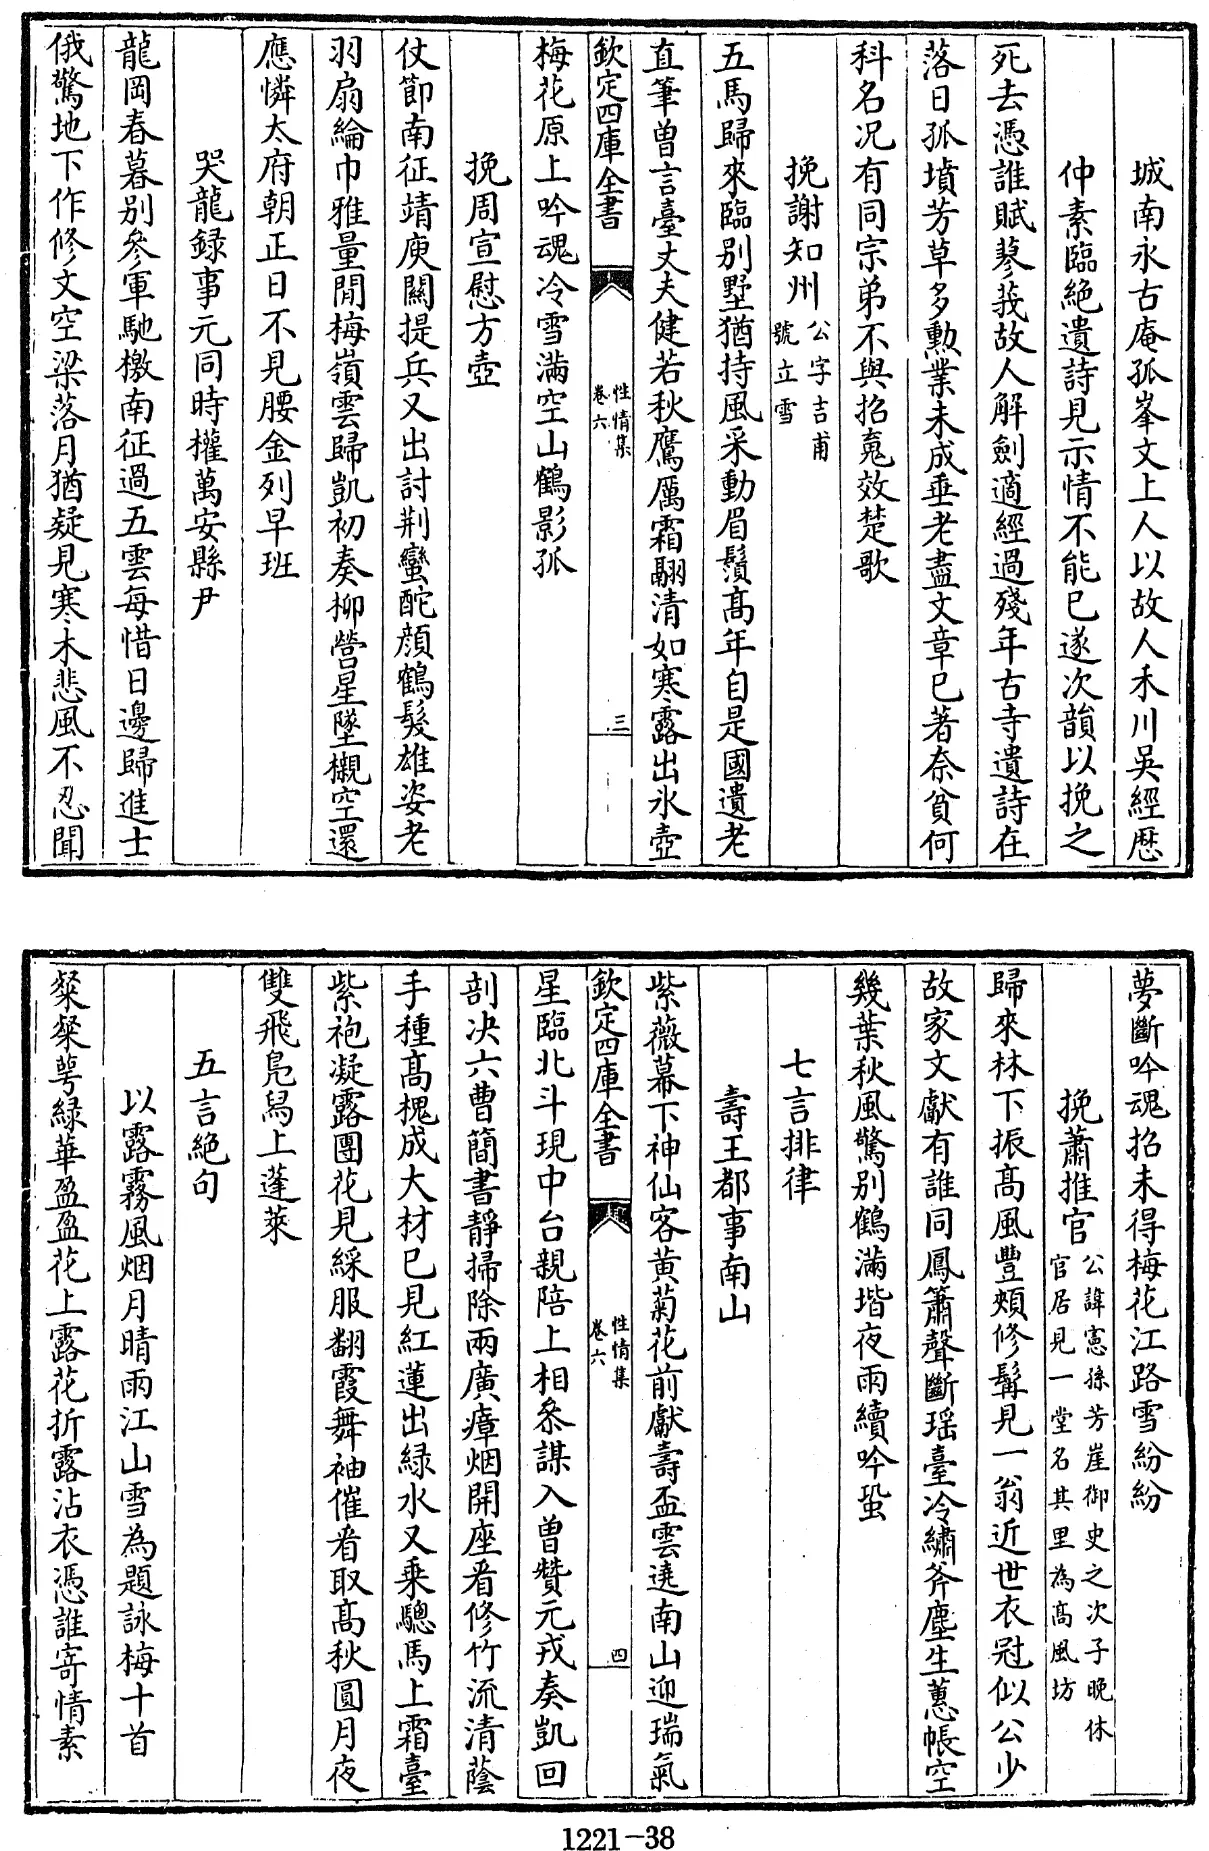 城南永古庵孤峯文上人以故人禾川吳經歴
仲素臨絶遺詩見示情不能已遂次韻以挽之
死去憑誰賦蓼莪故人解劍適經過殘年古寺遺詩在
落日孤墳芳草多勳業未成垂老盡文章已著奈貧何
科名况有同宗弟不與招䰟效楚歌
挽謝知州
公字吉甫
號立雪
五馬歸來臨别墅猶持風采動眉鬚髙年自是國遺老
直筆曾言臺丈夫健若秋鷹厲霜翮清如寒露出氷壺
欽定四庫全書
性情集
卷六
三
梅花原上吟魂冷雪滿空山鶴影孤
挽周宣慰方壺
仗節南征靖庾關提兵又出討荆蠻酡顔鶴髮雄姿老
羽扇綸巾雅量閒梅嶺雲歸凱初奏柳營星墜櫬空還
應憐太府朝正日不見腰金列早班
哭龍録事元同時權萬安縣尹
龍岡春暮别參軍馳檄南征過五雲每惜日邊歸進士
俄驚地下作修文空梁落月猶疑見寒木悲風不忍聞
夢斷吟魂招未得梅花江路雪紛紛
挽蕭推官
公諱憲孫芳崖御史之次子晚休
官居見一堂名其里為髙風坊
歸來林下振髙風豐頰修髯見一翁近世衣冠似公少
故家文獻有誰同鳳簫聲斷瑶臺冷繡斧塵生蕙帳空
幾葉秋風驚别鶴滿堦夜雨續吟蛩
七言排律
壽王都事南山
紫薇幕下神仙客黄菊花前獻壽盃雲遶南山迎瑞氣
欽定四庫全書
性情集
卷六
四
星臨北斗現中台親陪上相叅謀入曾贊元戎奏凱回
剖决六曹簡書靜掃除兩廣瘴烟開座看修竹流清蔭
手種髙槐成大材已見紅蓮出緑水又乘驄馬上霜臺
紫袍凝露團花見綵服翻霞舞袖催看取髙秋圓月夜
雙飛鳬舄上蓬萊
五言絶句
以露霧風烟月晴雨江山雪為題詠梅十首
粲粲萼緑華盈盈花上露花折露沾衣憑誰寄情素
1221—38